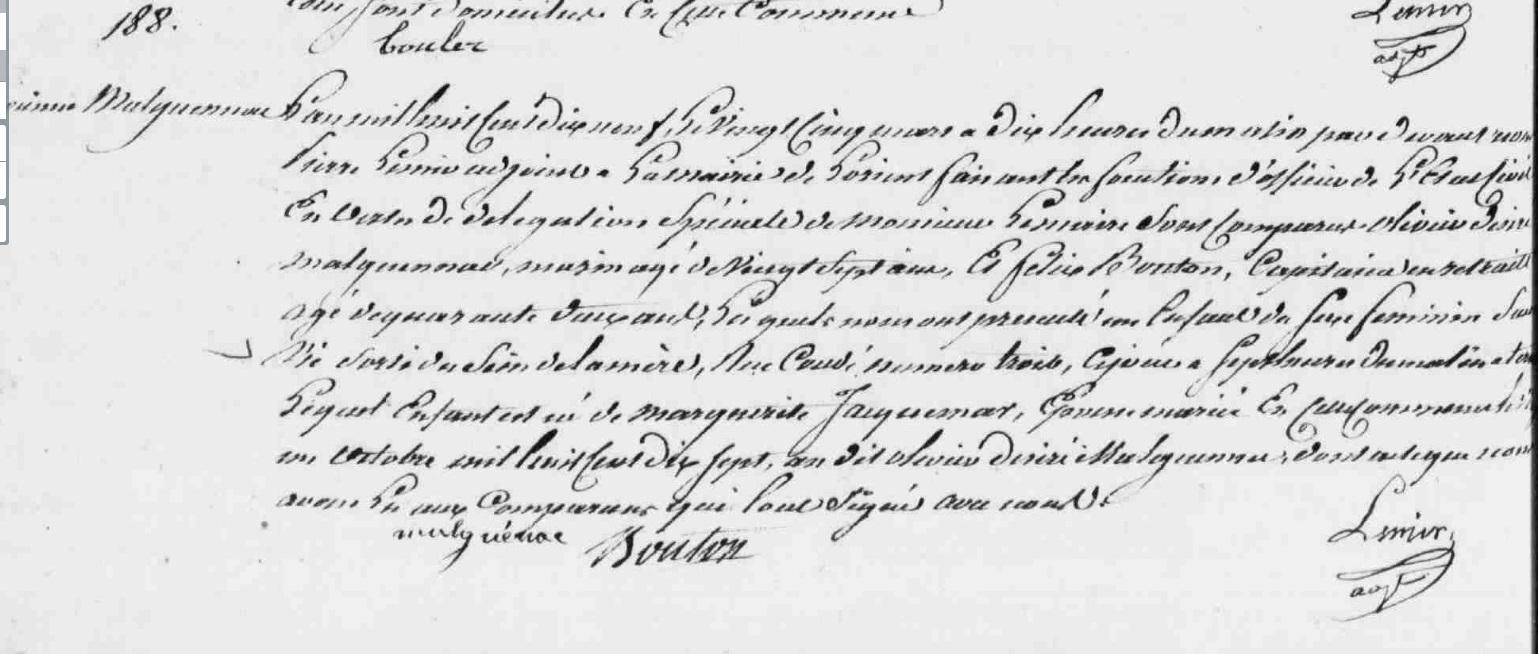 sont domiciliés En cette Commune
Lenir
adjt
188.
bouler
Malguennac L'an mil huit Cent dix neuf, Le Vingt Cinq mars a Dix heures du matin par devant nous
Pierre adjoint a La mairie de Lorient faisant les fonctions d'officier de L'Etat Civil
En vertu de délégation Spéciale de monsieur Lemaire Sont Comparus olivier Désiré
malguennac, marin agé de Vingt Sept ans, Et félix Bouton, Capitaine en retraite
agé de quarante deux ans, Les quels nous ont présenté un Enfant du Sexe féminin Sans
Vie Sorti du Sein de la mère, Rue Condé numéro trois, Ce jour a Sept heures du matin
Lequel Enfant est né de marguerite Jacquemar, Epouse mariée En cette Commune
un octobre mil huit Cent Dix Sept, au dit olivier Désiré Malguennac, dont acte que nous
avons Lu aux Comparans qui l'ont Signé avec nous.
malguénac Bouton
Lenir
adjt